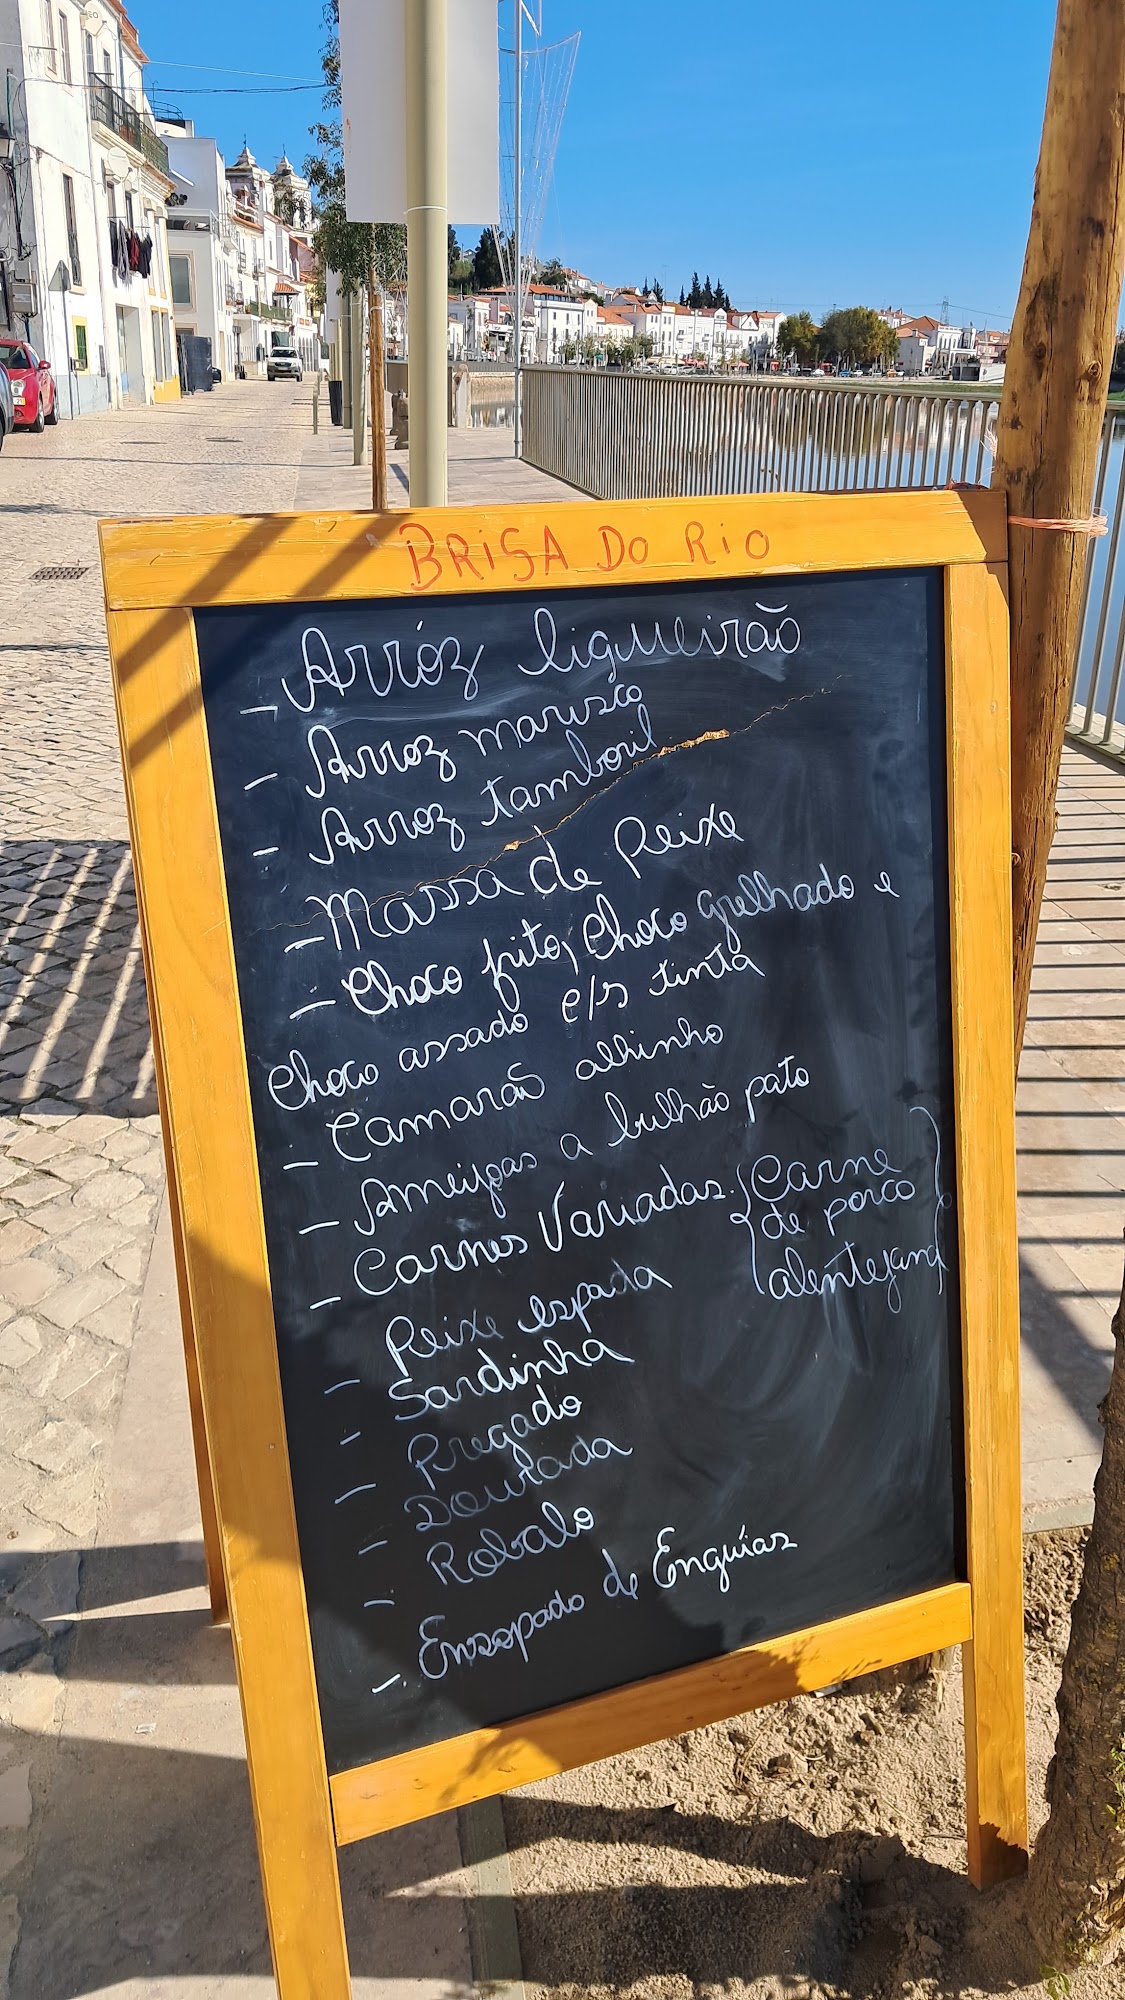 BRISA DO RIO
- Arróz ligueirão
- Arroz marisco
- Arroz tamboril
- Massa de Peixe
- Choco frito, Choco grelhado e
Choco assado c/s tinta
- Camarão alhinho
- Ameijoas a bulhão pato
- Carnes Variadas. {Carne
de porco
alentejana}
- Peixe espada
- Sardinha
- Pregado
- Dourada
- Robalo
- Ensopado de Enguías